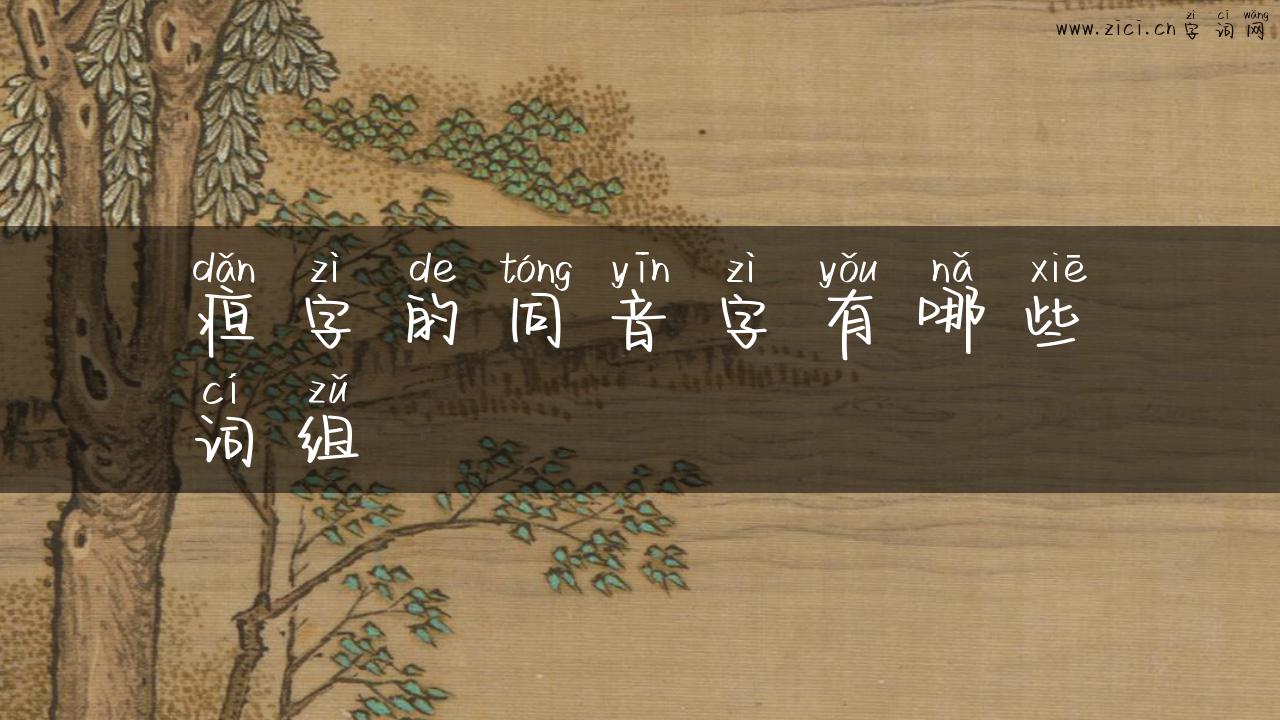 zì cí wǎng
www.zici.cn 字词网
dǎn zì de tóng yīn zì yǒu nǎ xiē
疸字的同音字有哪些
cí zǔ
词组